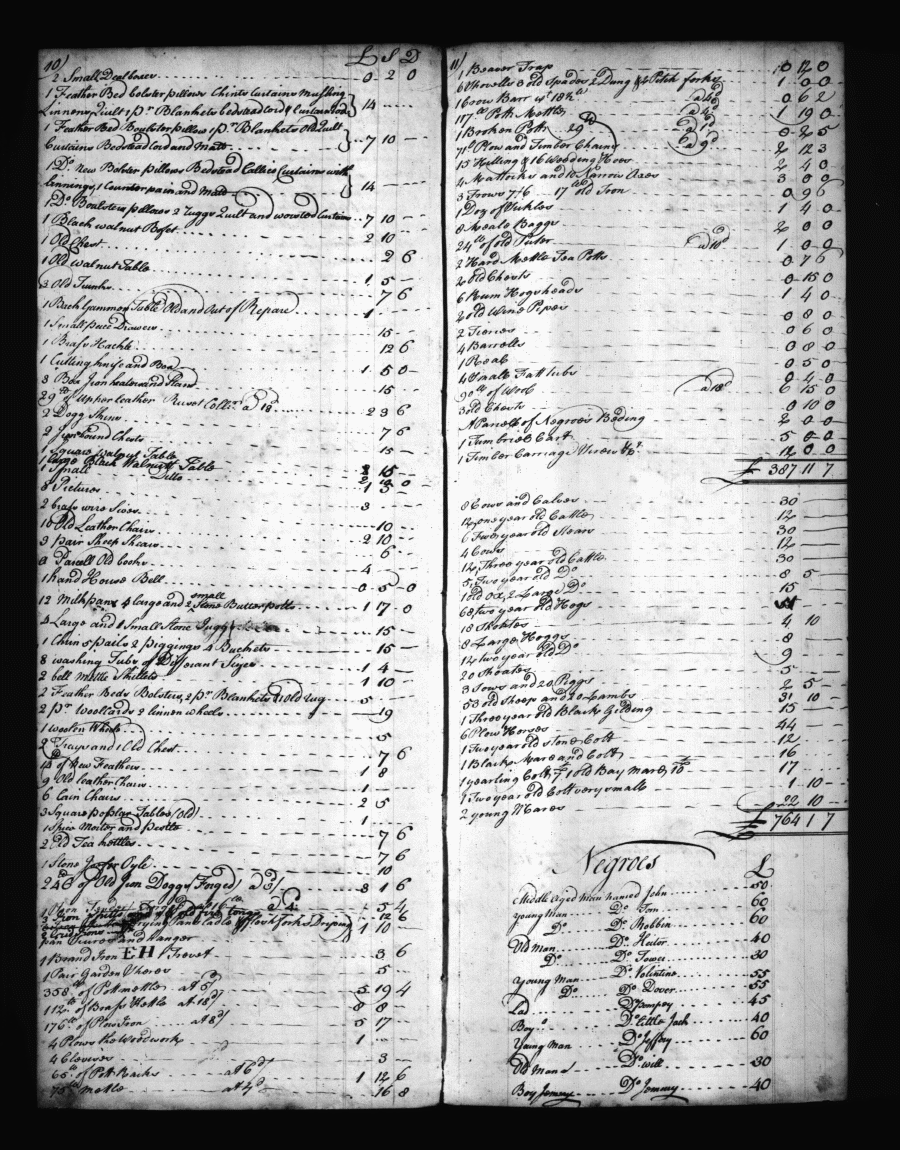 10)
£ S D
2 Small Deal boxes 0 2 0
1 Feather Bed bolster pillows Chints Curtains Musling
Linnen Quilt 1 pr Blankets bedsteadcord & Curtain rods 14
1 Feather Bed Boulster pillow 1 pr Blankets Old Quilt
Curtains Bedstead Cord and Matt 7 10
1 Do New Bolster pillows Bedstead Callico Curtains with
Linnings 1 Counterpain and Matt 14
1 Do Boulster pillows 2 Ruggs Quilt and worsted Curtains 7 10
1 Black walnut Bofet 2 10
1 Old Chest 2 6
1 Old walnut Table 1 5
2 Old Trunks 7 6
1 Back Gammon Table Old and Out of Repare 1
1 Small pair Drawers 15
1 Brass Hackle 12 6
1 Cutting knife and Box 1 5 0
3 Box Iron heaters and Stand 15
29 of Upper leather a 18d 2 3 6
2 Dogg Skins 7 6
2 Iron bound Chests 15
1 Square walnut Table
1 Large Black Walnutt Table 15
1 Small Ditto
8 Pictures 1 5
2 brass wire Sives 3
10 Old Leather Chairs 10
3 pair Sheep Shears 2 10
a Parcell Old books 6
1 hand House Bell 4
12 Milkpans 4 large and 2 small Stone Butterpotts 0 5 0
4 Large and 1 Small Stone Juggs 1 7 0
1 Churn 5 pails 2 piggings 4 Buckets 15
8 washing Tubs of Different Sizes 15
2 bell Mettle Skillets 1 4
2 Feather Beds Bolsters, 2 pr Blankets & 1 Old rug 1 10
2 pr Woolcards 2 linnen wheels 5
1 woolen Wheel 19
2 Trays and 1 Old Chest 5
of New Feathers 7 6
9 Old leather Chairs 1 8
6 Cain Chairs 1
3 Square poplar Tables (old) 2 5
1 Spice Morter and Pestle 1
2 Old Tea kettles 7 6
1 Stone Jug for Oyle 7 6
10
of Old Iron Doggs Forged a 3d 3 1 6
5 4
12 6
1 10
4 Brand Iron EH 1 Trevet 3 6
1 Pair Garden Sheres 5
358 lb of Pott mettle at 5d 5 19 4
112 lb of Brass Kettle at 18d 8 8
176 lb of Plow Iron at 8d 5 17
4 Plows the Woodworks 1
4 Clevises 3
65 lb of Pott Racks at 6d 1 12 6
Mettle at 16 8
11)
1 Beaver Trap 0 12 0
6 Shovells 3 old Spades 2 Dung & 2 Pitch forks 1 0 0
1 Crow Barr wt 18½ lb a 4d 0 6 2
117 lb Pott Mettle a 4d 1 19 0
1 Broken Pott 29 lb 0 2 5
71 lb Plow and Timber Chains a 9d 2 12 3
15 Hilling & 16 Weeding Hoes 2 4 0
4 Mattocks and 10 Narrow Axes 3 0 0
3 Frows 7/6 17 lb old Iron 0 9 6
1 Doz of Sickles 1 4 0
8 Meale Baggs 2 0 0
24 lb of old Puter a 10d 1 0 0
2 Hard Mettle Tea Potts 0 7 6
2 old Chests 0 15 0
6 Rum Hogsheads 1 4 0
2 old Wine Pipes 0 8 0
2 Tierces 0 6 0
4 Barrells 0 8 0
1 Real 0 5 0
4 Small Fatt tubs 0 4 0
90 lb of Wool a 18d 6 15 0
3 old Chests 0 10 0
A Parcell of Negroes Beding 2 0 0
1 Timbril Cart 5 0 0
1 Timber Carriage 12 0 0
£ 387 11 7
8 Cows and Calves 30
12 one year old Cattle 12
6 Two year old Stears 30
4 Cows 12
12 Three year old Cattle 30
5 Two year old Do 8 5
1 old Ox, 2 Large Do 15
68 two year old Hogs 51
18 Shotes 4 10
8 Large Hoggs 8
12 two year old Do 9
20 Shoates 5
3 Sows and 20 Piggs 2 5
53 old Sheep and 20 Lambs 31 10
1 Three year old Black Gelding 15
6 Plow Horses 44
1 Two year old stone Colt 12
1 Black Mare and Colt 16
1 yearling Colt £7 1 old Bay Mare £10 17
1 Two year old Colt very small 1 10
2 young Mares 22 10
£ 764 1 7
Negroes £
Middle Aged Man named John 50
Young Man Do Tom 60
Do Do Robbin 60
Old Man Do Hector 40
Do Do Tower 30
Young Man Do Valentine 55
Do Do Dover 55
Lad Do Pompey 45
Boy Do Little Jack 40
Young Man Do Jeffery 60
Old Man Do Will 30
Boy Jemmy Do Jemmy 40